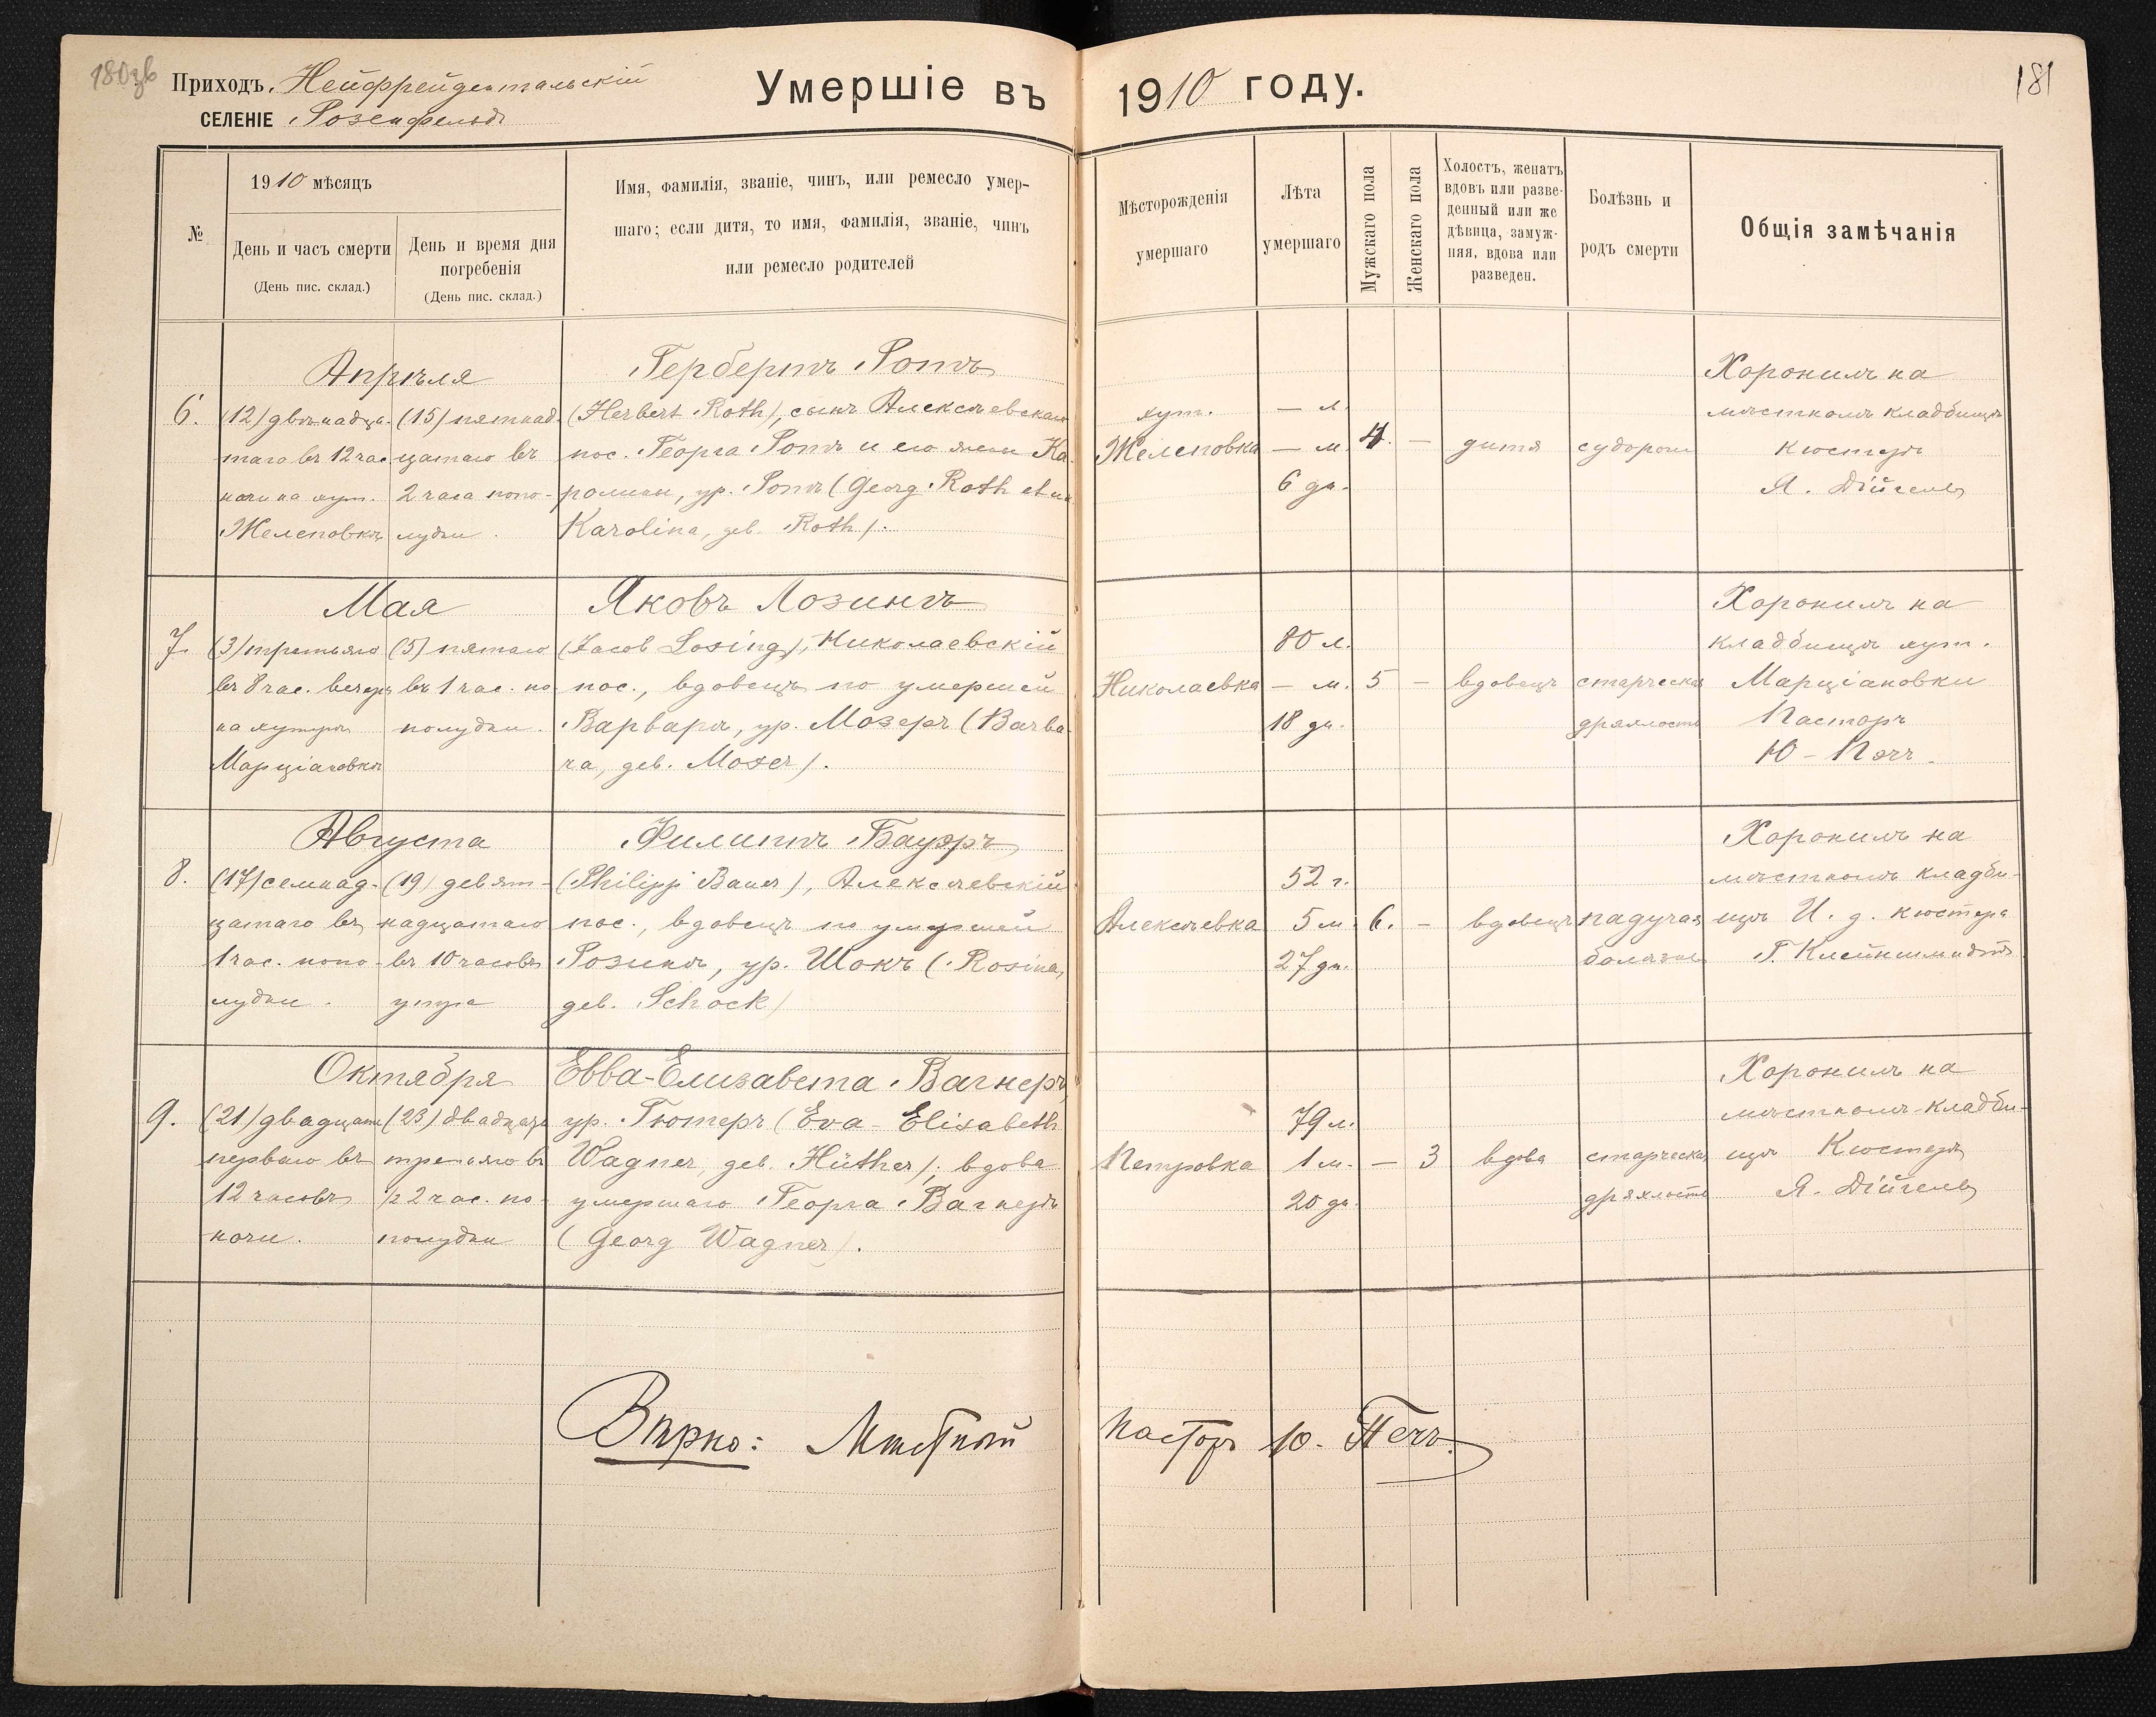 180зв
Приходъ Нейфрейдентальскій
СЕЛЕНІЕ Розенфельдъ
Умершіе въ 1910 году.
181
№
1910 мѣсяцъ
День и часъ смерти
(День пис. склад.)
День и время дня
погребенія
(День пис. склад.)
Имя, фамилія, званіе, чинъ, или ремесло умер-
шаго; если дитя, то имя, фамилія, званіе, чинъ
или ремесло родителей
Мѣсторожденія
умершаго
Лѣта
умершаго
Мужскаго пола
Женскаго пола
Холостъ, женатъ
вдовъ или разве-
денный или же
дѣвица, замуж-
няя, вдова или
разведен.
Болѣзнь и
родъ смерти
Общія замѣчанія
6.
Апрѣля
(12) двѣнадца-
таго въ 12 час.
ночи на хут.
Желеповкѣ
(15) пятнад-
цатаго въ
2 часа попо-
лудни.
Гербертъ Ротъ
(Herbert Roth), сынъ Алексѣевскаго
пос. Георга Ротъ и его жены Ка-
ролины, ур. Ротъ (Georg Roth et ux.
Karolina, geb. Roth).
хут.
Желеповка
— л.
— м.
6 дн.
4.
—
дитя
судороги
Хоронилъ на
мѣстномъ кладбищѣ
Кюстеръ
Я. Дійгель
7.
Мая
(3) третьяго
въ 8 час. вечера
на хуторѣ
Марціановкѣ
(5) пятаго
въ 1 час. по
полудни.
Яковъ Лозингъ
(Jacob Losing), Николаевскій
пос., вдовецъ по умершей
Варварѣ, ур. Мозеръ (Barba-
ra, geb. Moser).
Николаевка
80 л.
— м.
18 дн.
5
—
вдовецъ
старческая
дряхлость
Хоронилъ на
кладбищѣ хут.
Марціановки
Пасторъ
Ю. Пэчъ
8.
Августа
(17) семнад-
цатаго въ
1 час. попо-
лудни.
(19) девят-
надцатаго
въ 10 часовъ
утра
Филиппъ Бауэръ
(Philipp Bauer), Алексѣевскій
пос., вдовецъ по умершей
Розинѣ, ур. Шокъ (Rosina,
geb. Schock)
Алексѣевка
52 г.
5 м.
27 дн.
6.
—
вдовецъ
падучая
болѣзнь
Хоронилъ на
мѣстномъ кладби-
щѣ И. д. кюстера
Г. Клейншмидтъ
9.
Октября
(21) двадцать
перваго въ
12 часовъ
ночи.
(23) двадцать
третьяго въ
½ 2 час. по-
полудни
Евва-Елизавета Вагнеръ,
ур. Гютеръ (Eva-Elisabeth
Wagner, geb. Hüther), вдова
умершаго Георга Вагнеръ
(Georg Wagner).
Петровка
79 л.
1 м.
20 дн.
—
3
вдова
старческая
дряхлость
Хоронилъ на
мѣстномъ кладби-
щѣ Кюстеръ
Я. Дійгель
Вѣрно: Мѣстный Пасторъ Ю. Печъ.